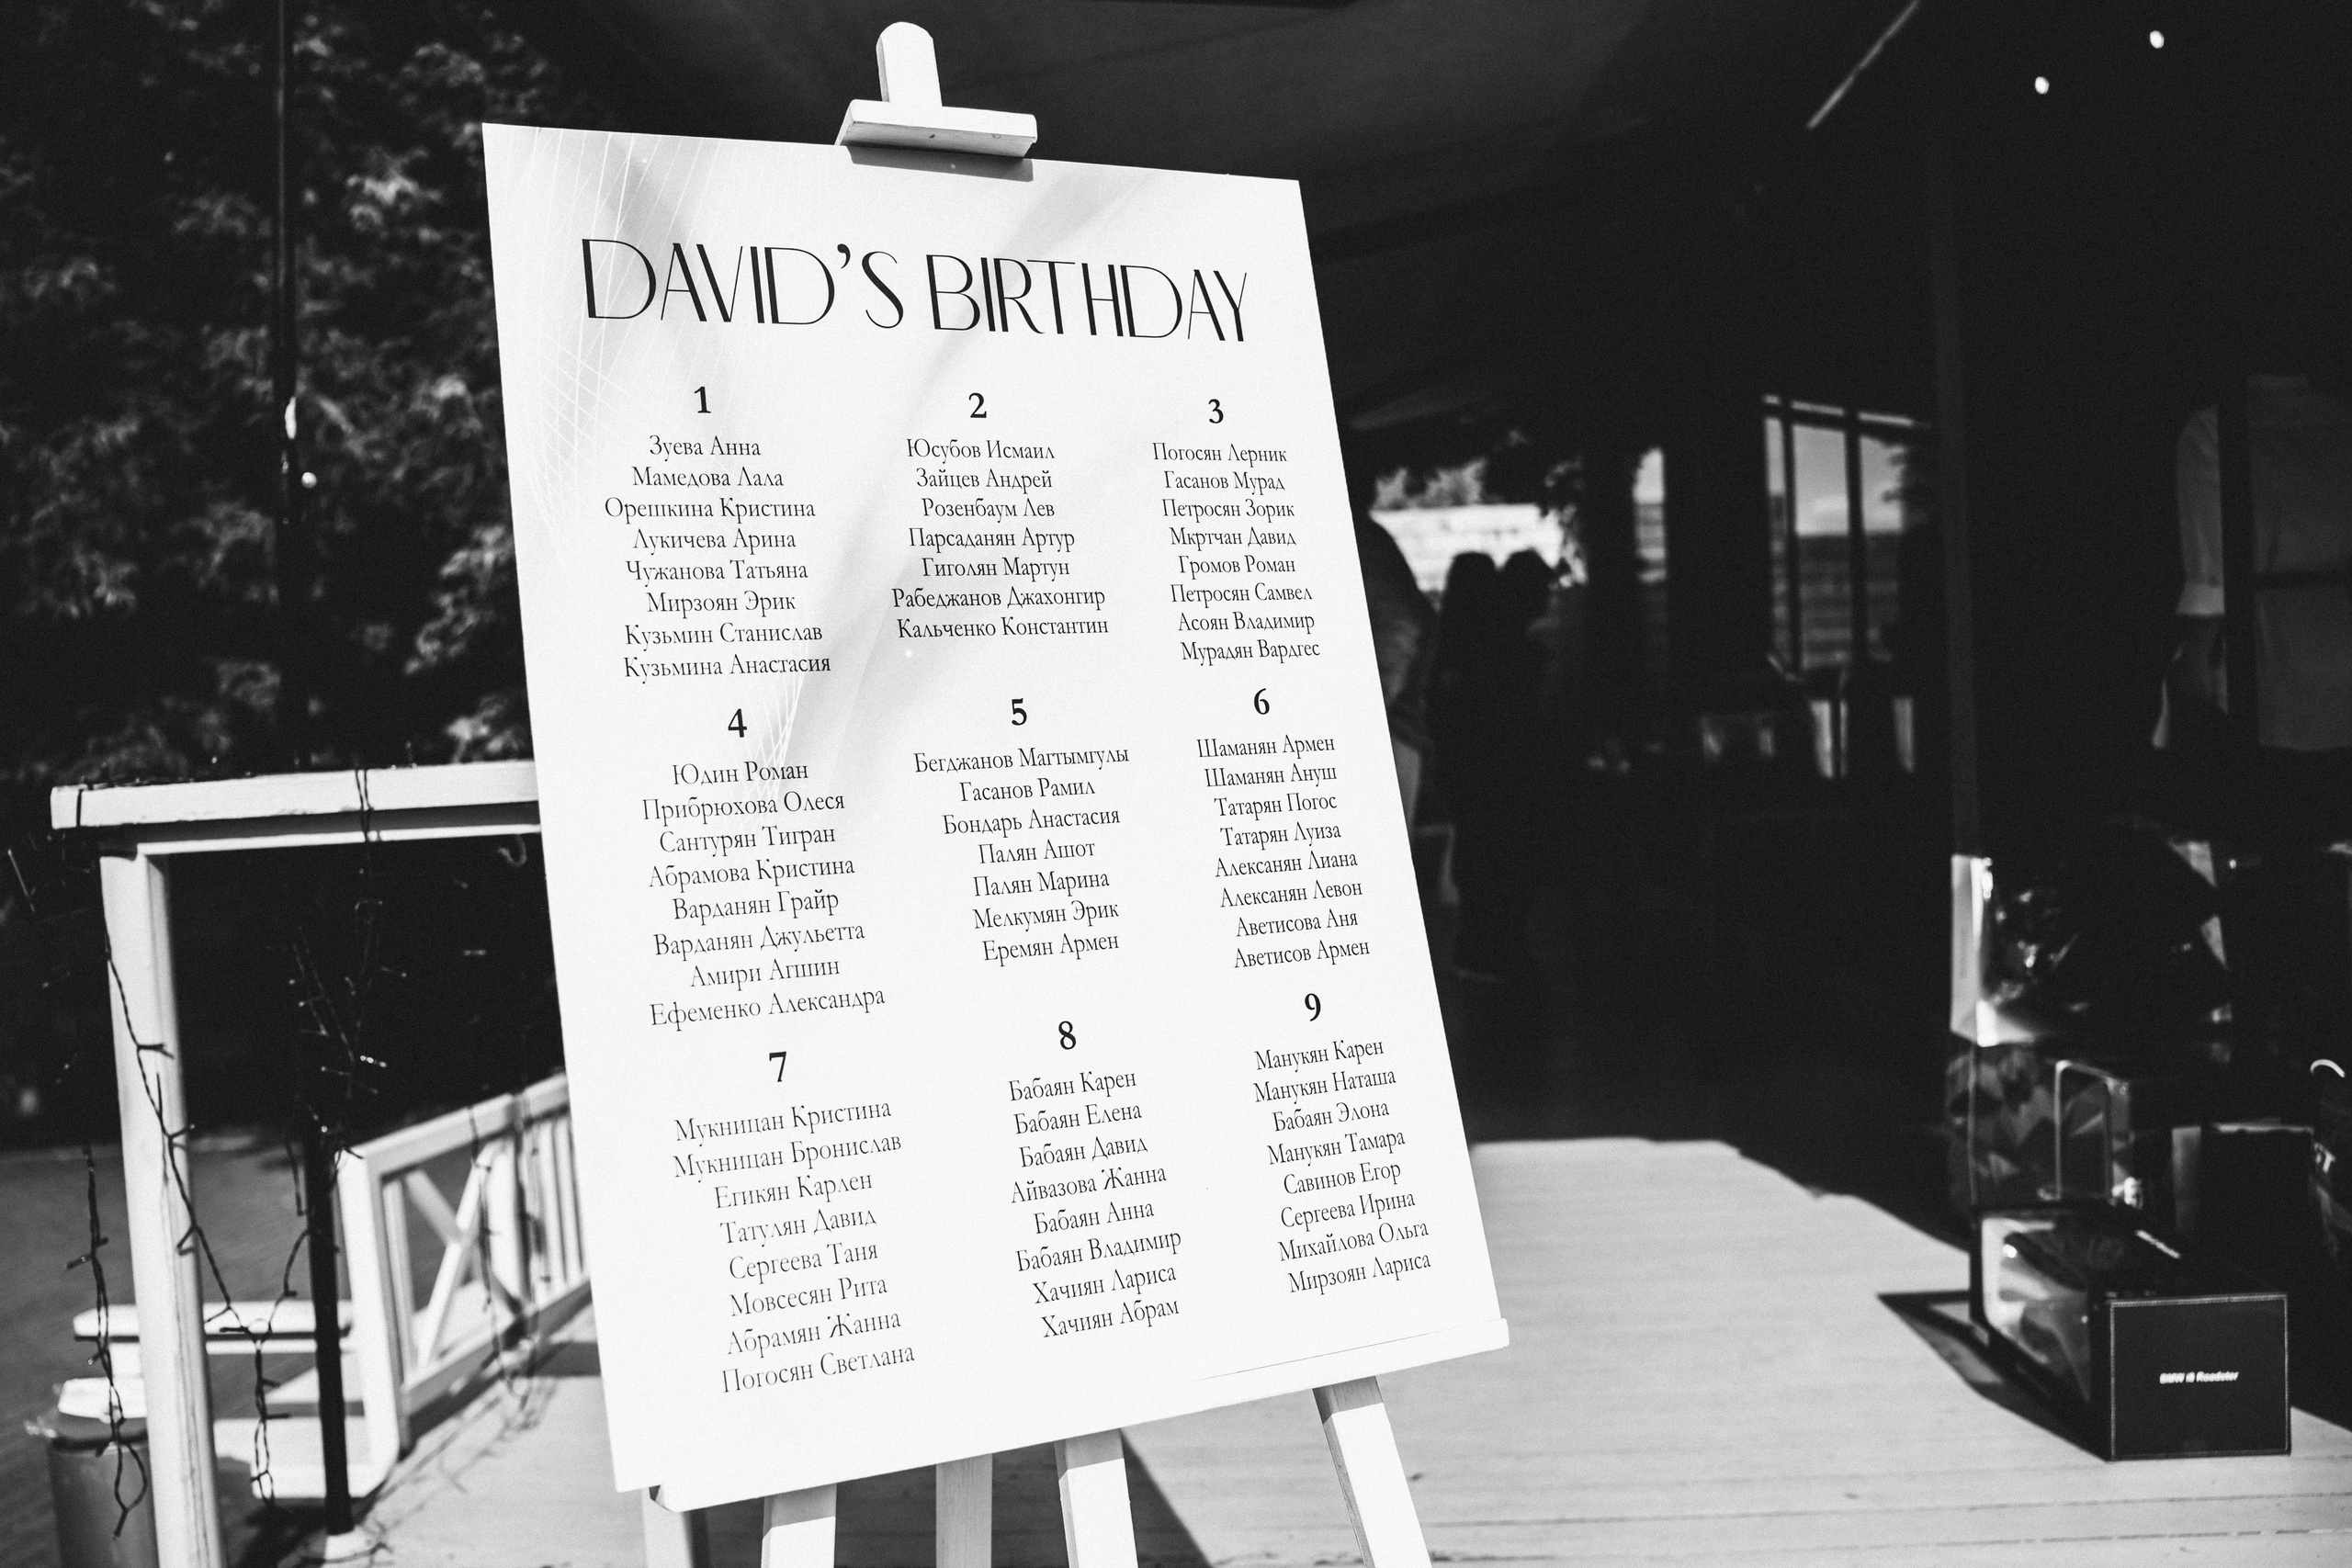 DAVID'S BIRTHDAY
1
Зуева Анна
Мамедова Лала
Орешкина Кристина
Лукичева Арина
Чужанова Татьяна
Мирзоян Эрик
Кузьмин Станислав
Кузьмина Анастасия
2
Юсубов Исмаил
Зайцев Андрей
Розенбаум Лев
Парсаданян Артур
Гиголян Мартун
Рабеджанов Джахонгир
Кальченко Константин
3
Погосян Лерник
Гасанов Мурад
Петросян Зорик
Мкртчан Давид
Громов Роман
Петросян Самвел
Асоян Владимир
Мурадян Вардгес
4
Юдин Роман
Прибрюхова Олеся
Сантурян Тигран
Абрамова Кристина
Варданян Грайр
Варданян Джульетта
Амири Агшин
Ефеменко Александра
5
Бегджанов Магтымгулы
Гасанов Рамил
Бондарь Анастасия
Палян Ашот
Палян Марина
Мелкумян Эрик
Еремян Армен
6
Шаманян Армен
Шаманян Ануш
Татарян Погос
Татарян Луиза
Алексанян Лиана
Алексанян Левон
Аветисова Аня
Аветисов Армен
7
Мукницан Кристина
Мукницан Бронислав
Егикян Карлен
Татулян Давид
Сергеева Таня
Мовсесян Рита
Абрамян Жанна
Погосян Светлана
8
Бабаян Карен
Бабаян Елена
Бабаян Давид
Айвазова Жанна
Бабаян Анна
Бабаян Владимир
Хачиян Лариса
Хачиян Абрам
9
Манукян Карен
Манукян Наташа
Бабаян Элона
Манукян Тамара
Савинов Егор
Сергеева Ирина
Михайлова Ольга
Мирзоян Лариса
BMW i8 Roadster